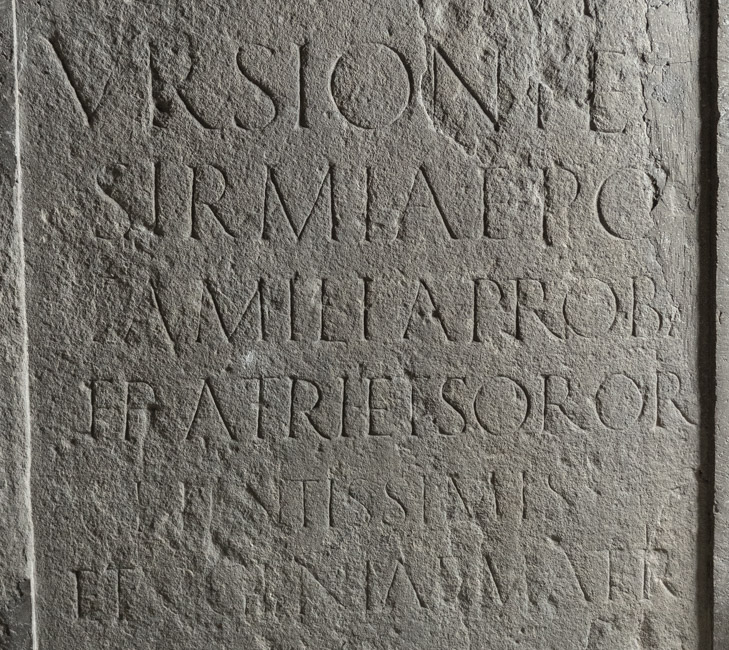 VRSIONI ET
SIRMIAE PO
CAMILLIA PROBA
FRATRI ET SOROR
PIENTISSIMIS
ET MATR